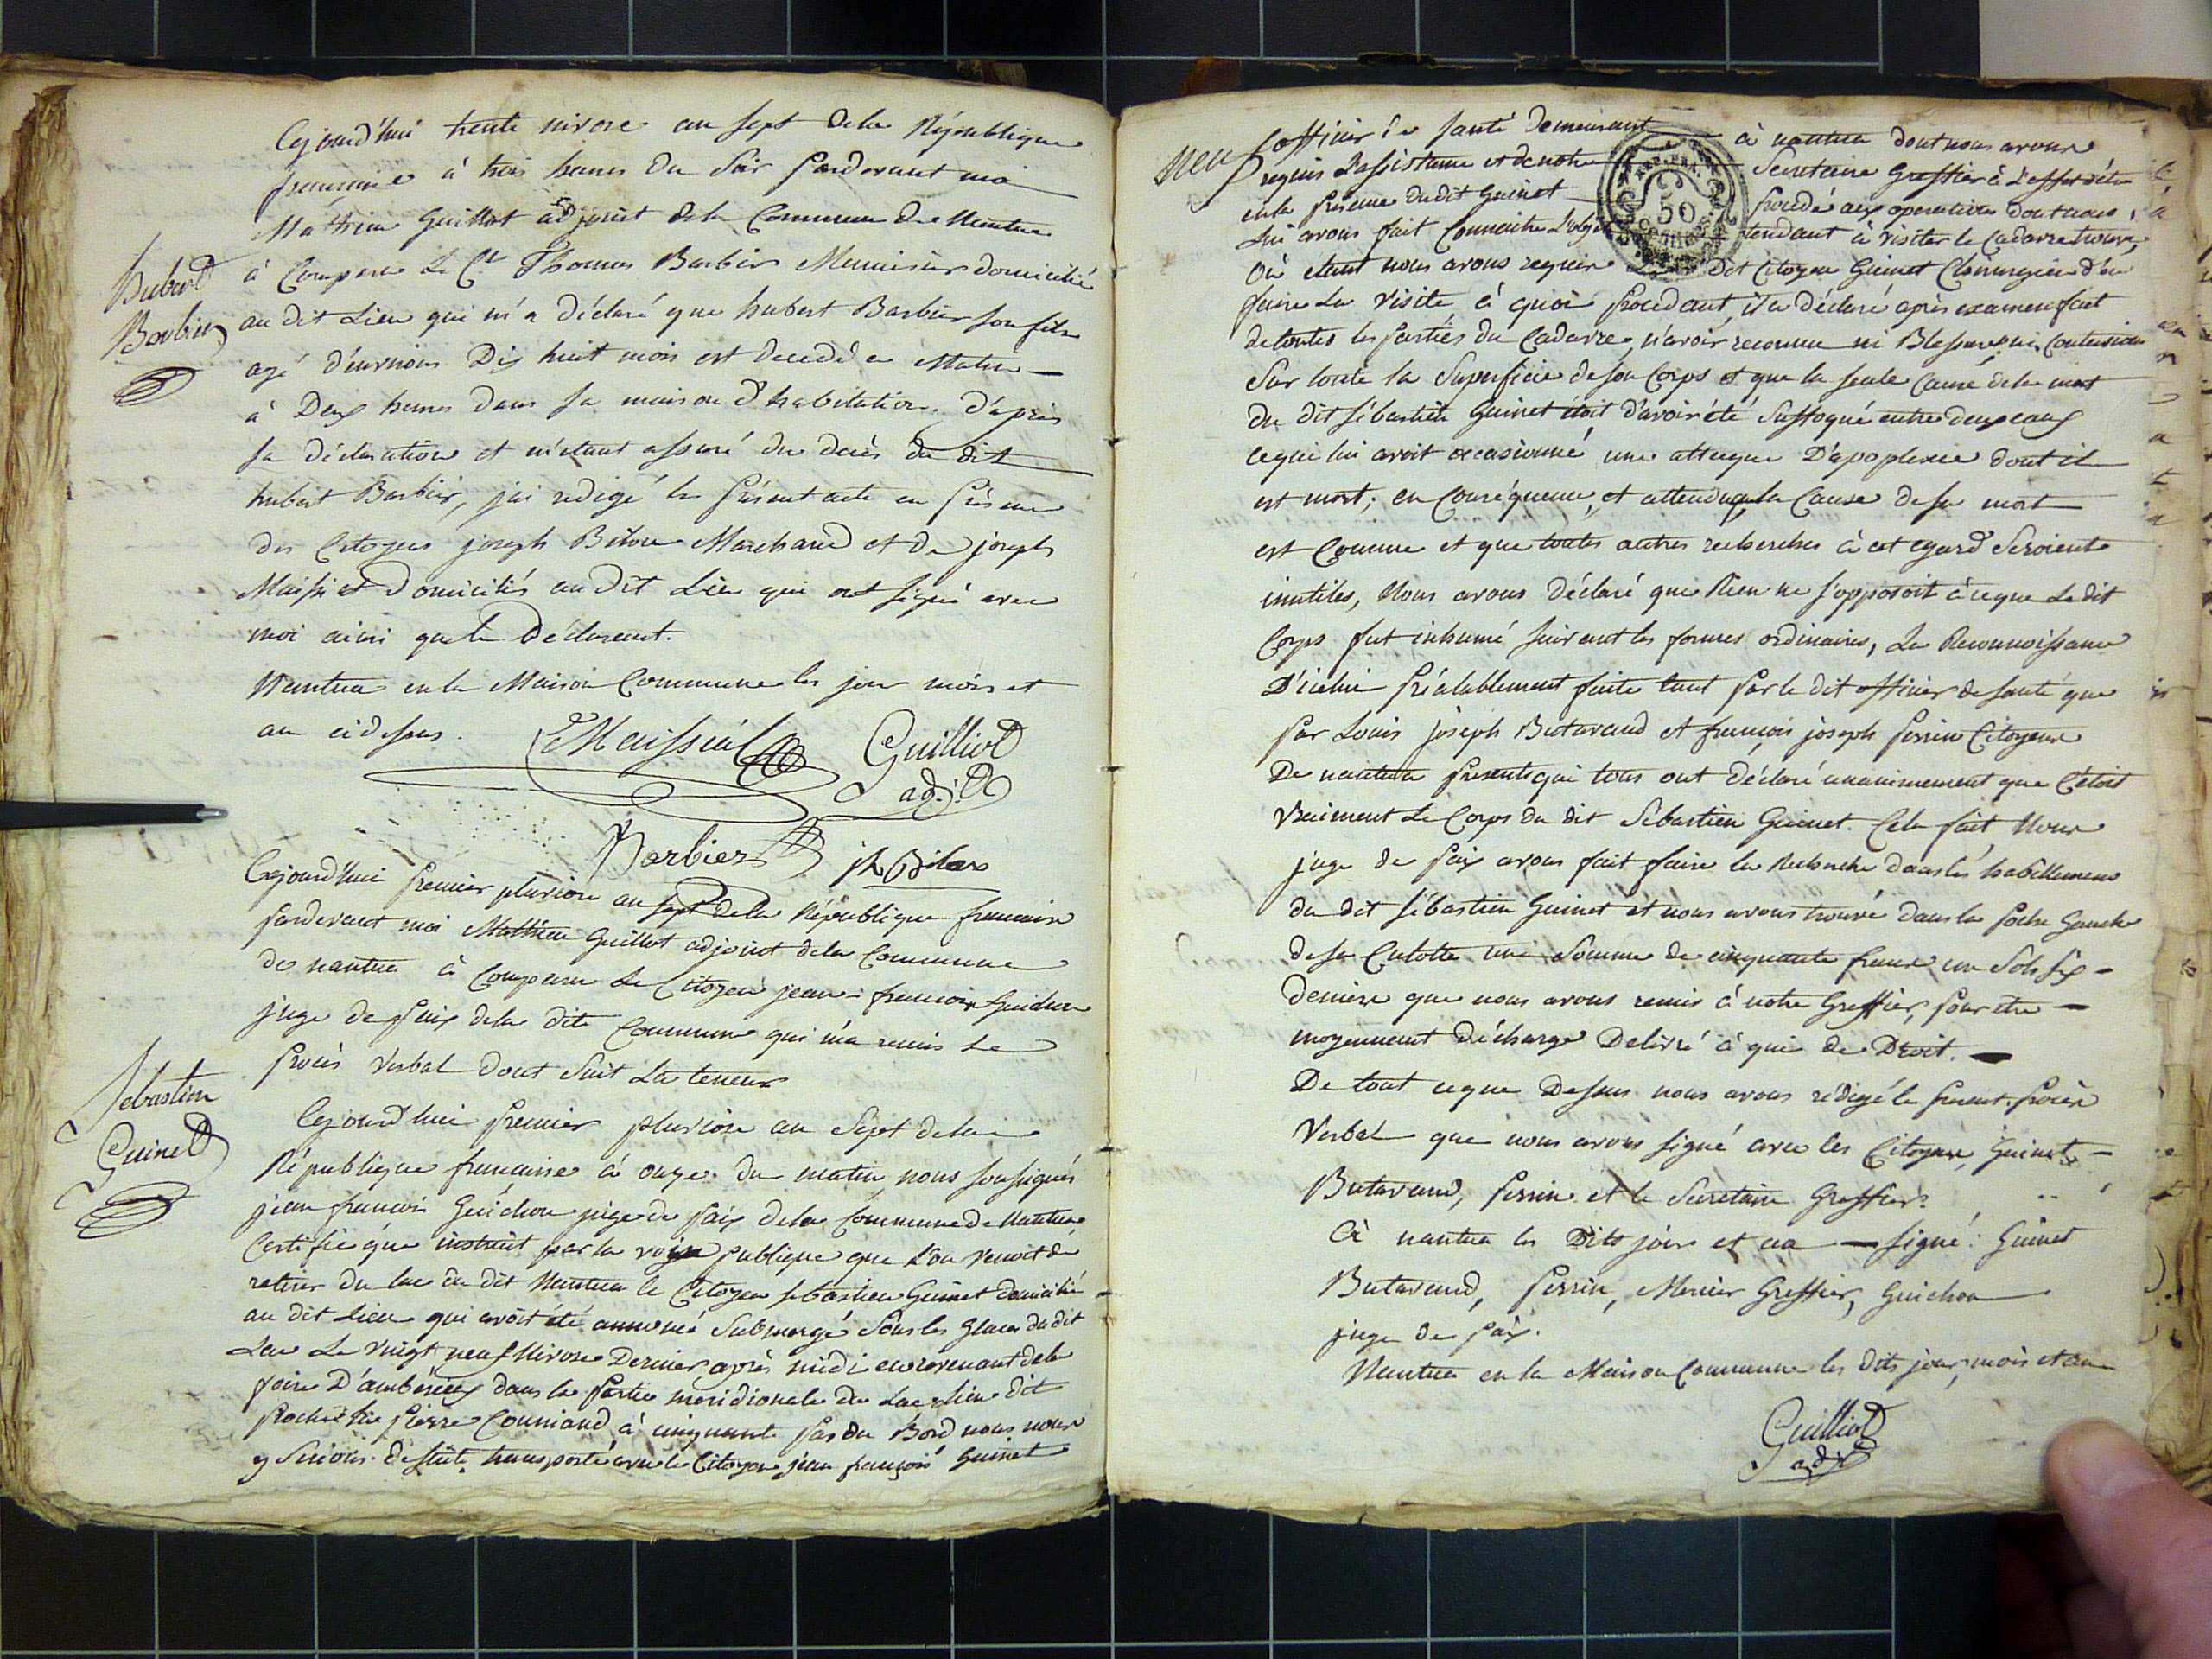 Cejourd'hui trente nivose an sept dela République
francaise à trois heures du Soir Pardevant moi
Mathieu Guilliot adjoint dela Commune de Nantua
à Comparu le C.en Thomas Barbier Menuisier domicilié
au dit Lieu qui m'a déclaré que hubert Barbier son fils
agé d'environ Dix huit mois est decedé ce Matin
à Deux heures dans sa maison d'habitation. d'après
sa déclaration et m'étant assuré du decès du dit
hubert Barbier, j'ai redigé le présent acte en présence
des Citoyens joseph Marchand et de joseph
Maissiat Domiciliés audit Lieu qui ont signé avec
moi ainsi que le Déclarant.
Nantua en la Maison Commune les jour mois et
an cidessus.
Hubert
Barbier
Maissiat Guilliot
adj.t
Barbier
Cejourd'hui premier pluviose an sept dela République francaise
pardevant moi Mathieu Guilliot adjoint dela Commune
de nantua à Comparu Le Citoyen jean-francois Guichon
juge de paix dela dite Commune qui m'a remis Le
procès Verbal dont Suit La teneur
Sebastien
Guinet
Cejourd'hui premier pluviose an Sept dela
République francaise à onze du matin nous soussignés
jean francois Guichon juge de paix dela Commune de Nantua
Certifie que instruit par la voix publique que L'on venoit de
retirer du lac du dit Nantua le Citoyen sebastien Guinet domicilié
au dit Lieu qui avoit été annoncé Submergé Sous les Glaces du dit
Lac Le Vingt neuf Nivose Dernier après midi en revenant dela
foire D'ambérieux dans la partie méridionale du Lac Lieu dit
pierre à cinquante pas du Bord nous nous
y Serions de suite transporté avec le Citoyen jean françois Guinet
officier de santé demeurant à nantua dont nous avons
requis L'assistance et de notre Secretaire Greffier à L'effet d'être
en la présence du dit Guinet procédé aux operations dont nous
Lui avons fait Connaitre L'objet tendant à visiter le Cadavre trouvé,
Où étant nous avons requis Dit Citoyen Guinet Chirurgien d'en
faire La Visite à quoi procédant, il a déclaré après examen fait
de toutes les parties du Cadavre, n'avoir reconnu ni Blessure, ni Contusion
Sur toute la Superficie de son Corps et que la seule Cause dela mort
du dit sébastien Guinet étoit d'avoir été Suffoqué entre deux eaux
ce qui lui avoit occasionné une attaque D'apoplexie dont il
est mort; en Conséquence, et attendu que la Cause de sa mort
est Connue et que toutes autres recherches à cet egard Seroient
inutiles, Nous avons Déclaré que Rien ne s'opposoit à ce que Le dit
Corps fut inhumé suivant les formes ordinaires, La Reconnoissance
D'icelui préalablement faite tant par le dit officier de santé que
par Louis joseph Butavand et francois joseph perrin Citoyens
De nantua presents qui tous ont déclaré unanimement que C'étoit
Vraiment Le Corps du dit Sébastien Guinet. Cela fait, Nous
juge de paix avons fait faire la Recherche dans les habillemens
du dit sébastien Guinet et nous avons trouvé dans la poche Gauche
de sa Culotte une Somme de cinquante francs un Sols six
deniers que nous avons remis à notre Greffier, pour etre
moyennent décharge Delivré à qui de Droit.
De tout ce que Dessus nous avons rédigé le present procès
Verbal que nous avons signé avec les Citoyens, Guinet
Butavand, perrin et le Secretaire Greffier.
à nantua les Dits jour et an signé: Guinet
Butavand, perrin, Mercier Greffier, Guichon
juge de paix.
Nantua en la Maison Commune les dits jour, mois et an
Guilliot
adjt
50